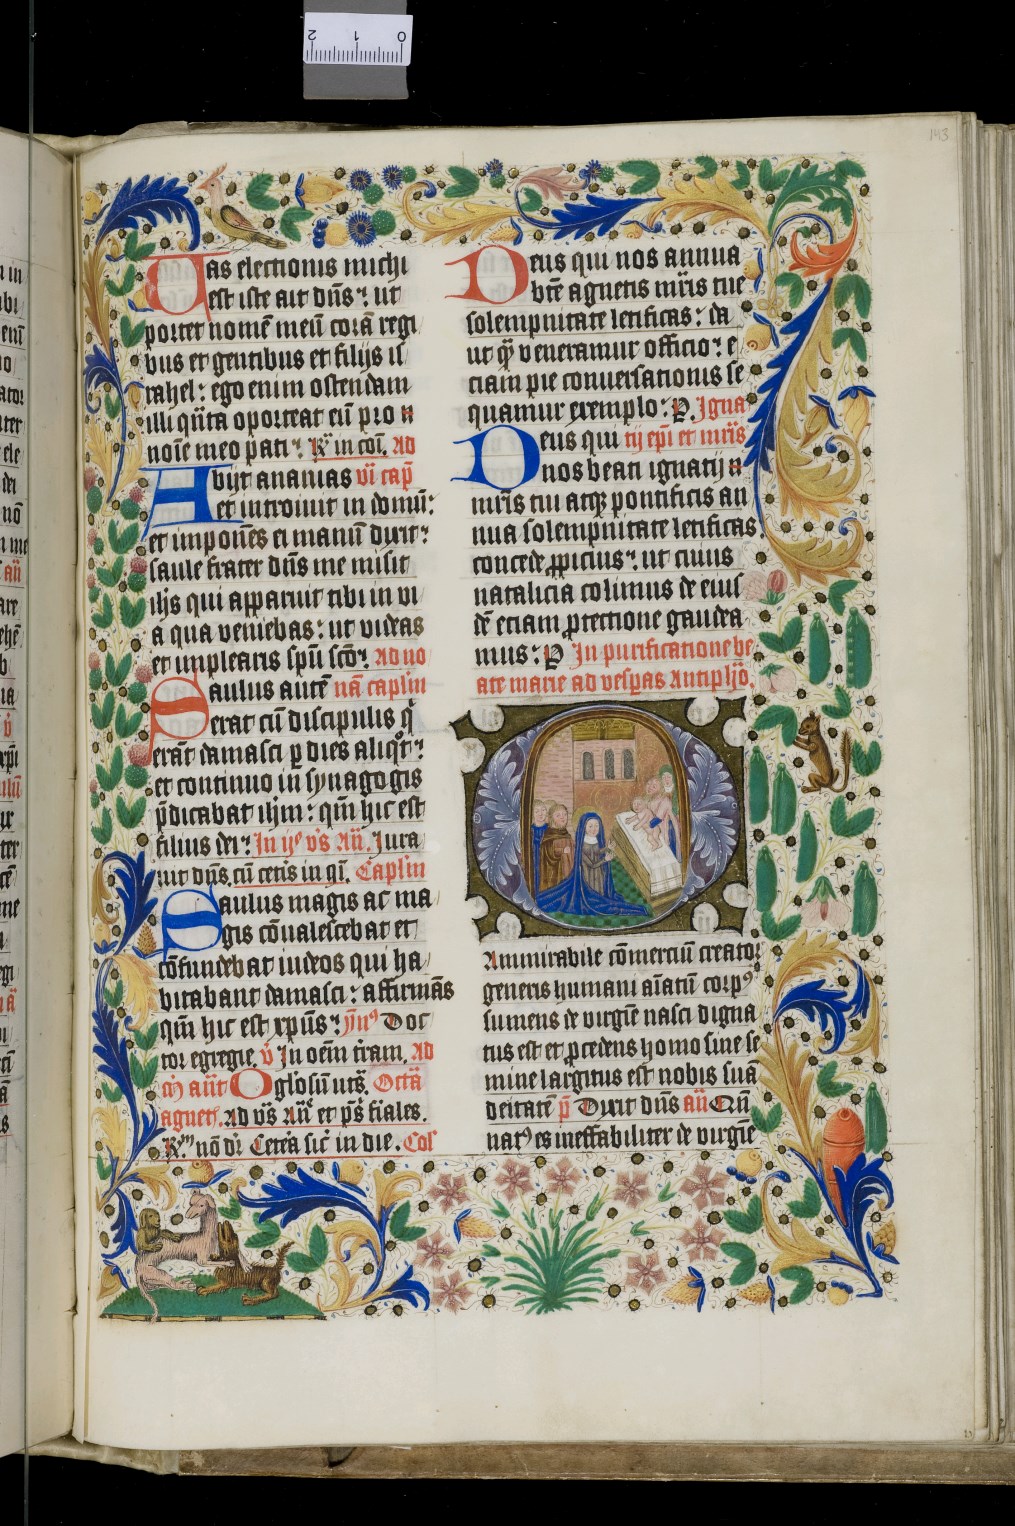 143
Vas electionis michi
est iste ait dn̄s ⁊ ut
portet nomē meū corā regi
bus et gentibus et filijs is
rahel : ego enim ostendam
illi qūta oporteat eū pro n
noīe meo pati ⁊. R̄ in coī. Ad
Abijt ananias vī cap̄
et introiuit in domū :
et imponēs ei manū dixit :
saule frater dn̄s me misit
ih̄s qui apparuit tibi in vi
a qua veniebas : ut videas
et implearis sp̄u scō ⁊. Ad no
Saulus autē nā caplm
erat cū discipulis q̄
erāt damasci p dies aliq̄t ⁊
et continuo in synagogis
p̄dicabat ih̄m : qm̄ hic est
filius dei ⁊. In ijᵉ vs̄ Añ. Jura
uit dn̄s. cū cetīs in qī. Caplm
Saulus magis ac ma
gis cōualescebat et
cōfundebat iudeos qui ha
bitabant damasci : affirmās
qm̄ hic est xp̄us ⁊. ym̄ꝰ Doc
tor egregie. v̄ In oēm t̄ram. Ad
m̄ añt O glōsū uts̄. Octā
agnet̄. Ad vs̄ Añ et ps̄ fiales.
R̄m nō dr̄ Cetēa sic̄ in die. Col̄
Deus qui nos annua
btē agnetis mr̄is tue
solempnitate letificas : da
ut q̄ veneramur officio : e
ciam pie conuersationis se
quamur exemplo : P. Igna
Deus qui tij ep̄i et mr̄is
nos beati ignatij n
mr̄is tui atqȝ pontificis an
nua solempnitate letificas
concede ꝓpicius ⁊. ut cuius
natalicia colimus de eius
dē eciam ꝓtectione gaudea
mus : P In purificatione be
ate marie ad vesp̄as Antiph̄o.
O
Ammirabile cōmerciū creator
generis humani aīatū corpꝰ
sumens de virgīe nasci digna
tus est et ꝓcedens homo sine se
mine largitus est nobis suā
deitatē p̄ Dixit dn̄s añ Qn̄
natꝰ es ineffabiliter de virgīe